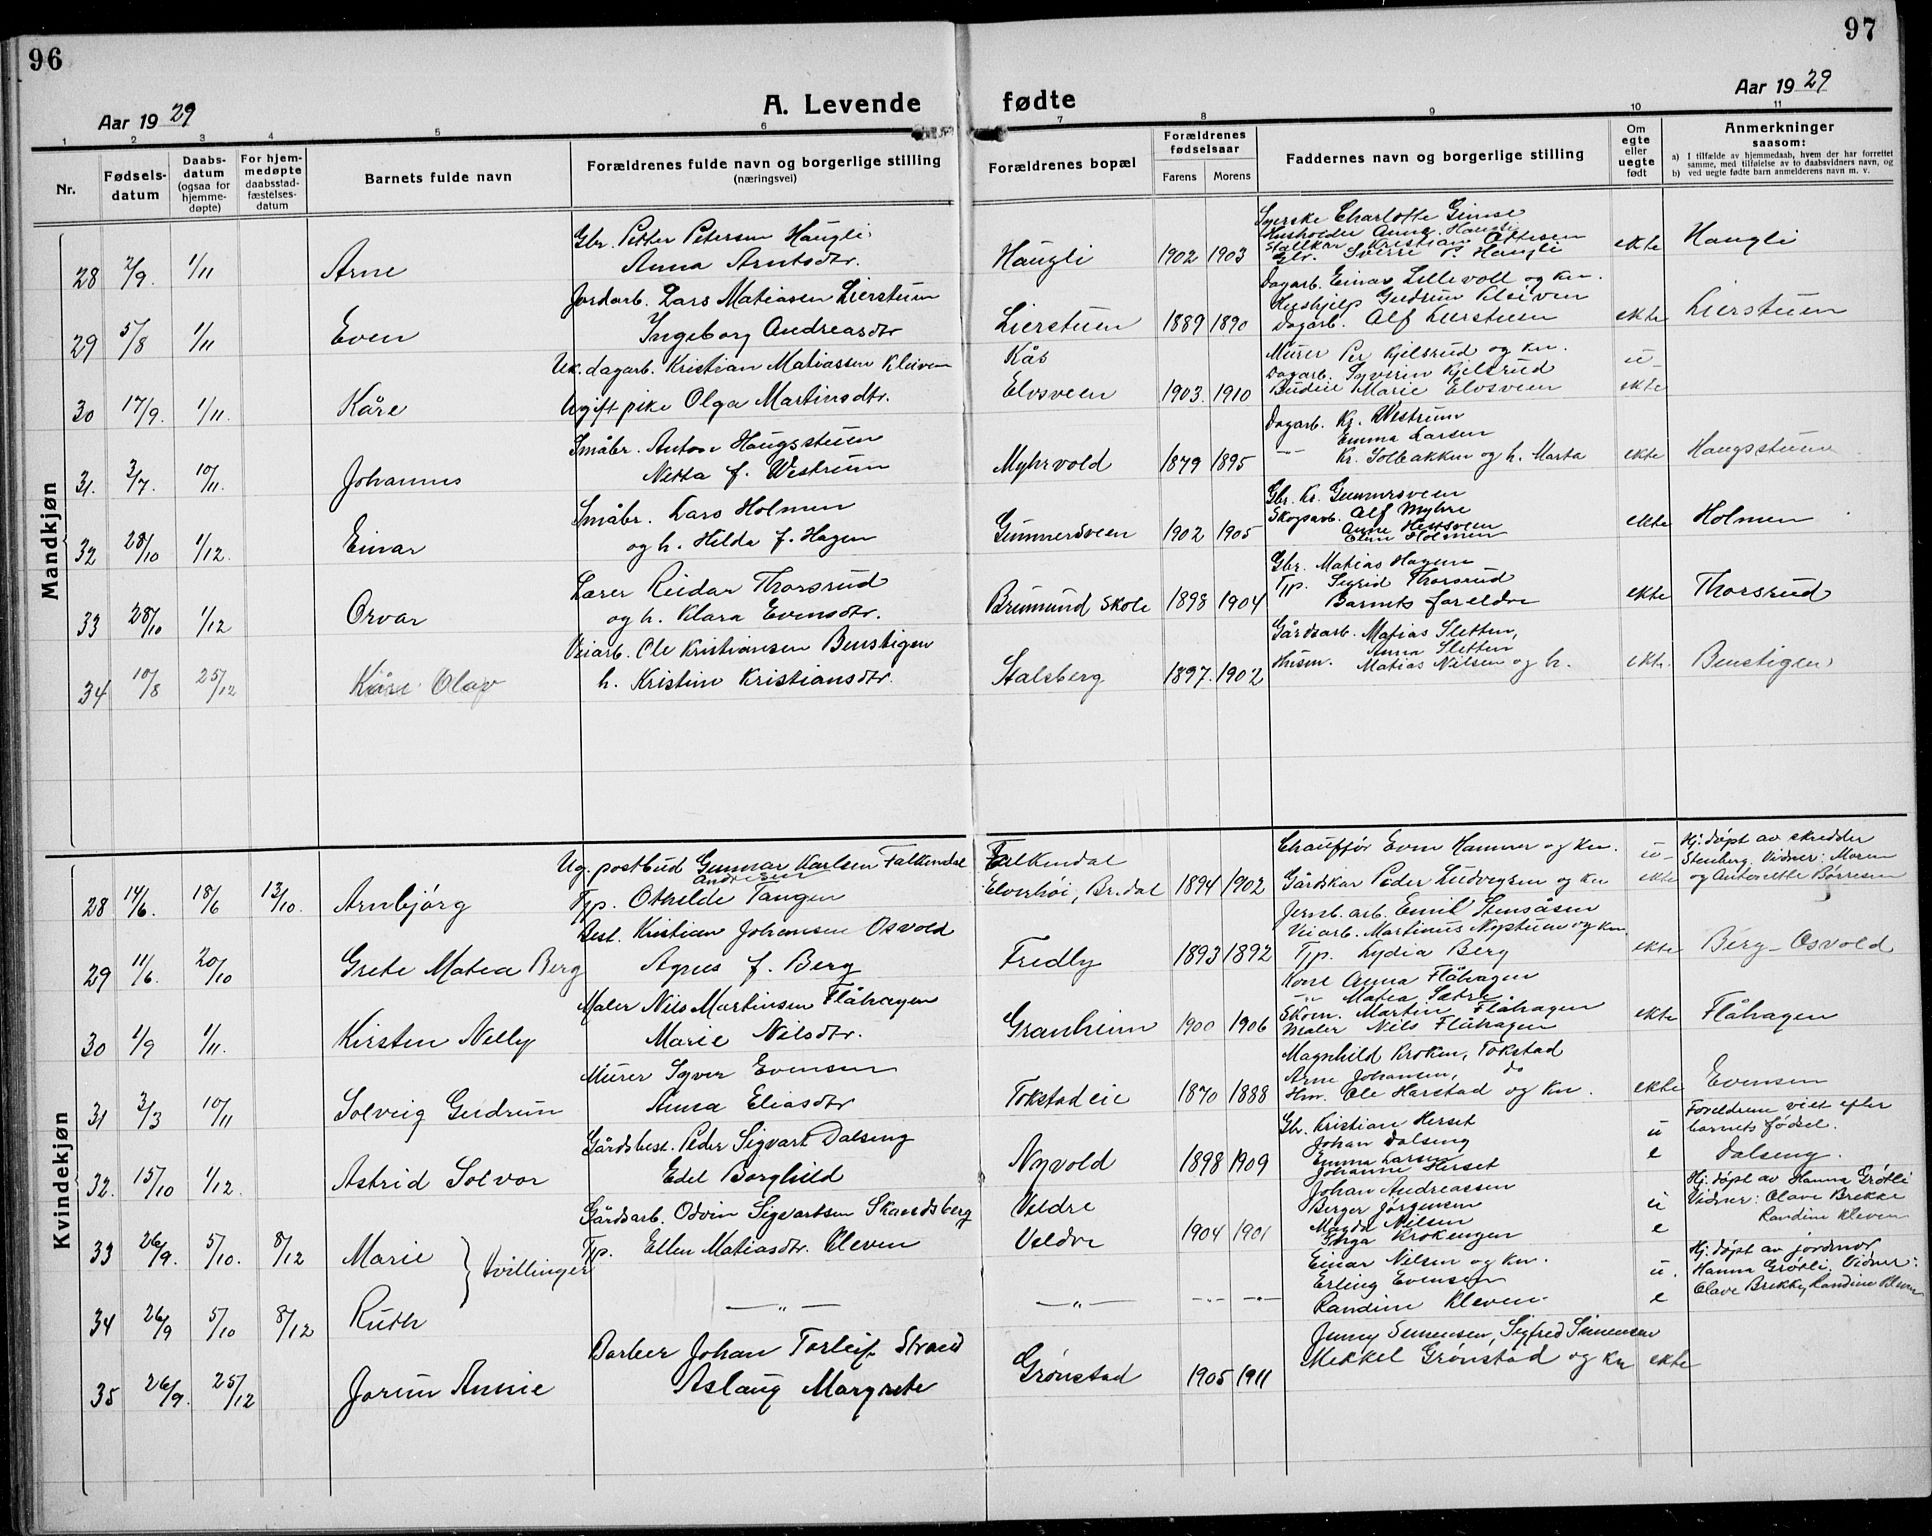 96
97
Aar 1929
A. Levende
fødte
Aar 1929
1 2 3 4 5 6 7 8 9 10 11
Nr.
Fødsels-datum
Daabs-datum (ogsaa for hjemme-døpte)
For hjem-medøpte daabsstad-fæstelses-datum
Barnets fulde navn
Forældrenes fulde navn og borgerlige stilling (næringsvei)
Forældrenes bopæl
Forældrenes fødselsaar
Farens Morens
Faddernes navn og borgerlige stilling
Om egte eller uegte født
Anmerkninger saasom:
a) I tilfælde av hjemmedaab, hvem der har forrettet samme, med tilføielse av to daabsvidners navn, og
b) ved uegte fødte barn anmelderens navn m. v.
Mandkjøn
Gbr. Petter Petersen Haugli
Syerske Charlotte Gimse
Husholder Anna Haugli
Stallkar Kristian Ottesen
28 2/9 1/11 Arne Anna Arntsdtr. Haugli 1902 1903 Gbr. Sverre P. Haugli ekte Haugli
Jordarb. Lars Matiasen Lierstuen
Dagarb. Einar Lillevoll og kn.
Hushjelp Gudrun
29 5/8 1/11 Even Ingeborg Andreasdtr Lierstuen 1889 1890 Dagarb. Alf Lierstuen ekte Lierstuen
Uk. dagarb. Kristian Matiassen Kleiven Kås Murer Per Kjelsrud og kn. u-
Dagarb. Syverin Kjelsrud
30 17/9. 1/11. Kåre Ugift pike Olga Martinsdtr. Elvsveen 1903. 1910 Budeie Marie Elvsveen ekte
Småbr. Anton Haugsstuen
Dagarb. Kr. Westrum
Emma Larsen
31. 3/7. 10/11. Johannes Netta f. Westrum Myhrvold 1879 1895 -"- Kr. Solbakken og h. Marta ekte Haugsstuen
Småbr. Lars Holmen
Gbr. Kr. Gunnersveen
Skogsarb. Alf Myhre
Anne Hestsveen
32 28/10 1/12. Einar og h. Hilda f. Hagen Gunnersveen 1902 1905 Holmen ekte Holmen
Lærer Reidar Thorsrud
Gbr. Matias Hagen
Tjp. Sigrid Thorsrud
33 28/10 1/12 Orvar og h. Klara Evensdtr. Brumund Skole 1898 1904 Barnets foreldre ekte Thorsrud
Veiarb. Ole Kristiansen Benstigen
Gårdsarb. Matias Sletten,
Anna Sletten
34 10/8 25/12 Kåre Olav h. Kristine Kristiansdtr. Stalsberg 1897. 1902 Husm. Matias Nilsen og h. ekte. Benstigen
Kvindekjøn
Ug. postbud Gunnar Karlsen Falkendal Falkendal Chauffør Even Hammer og kn. u- Hj. døpt av skredder
Andresen
Stenberg. Vidner: Maren
28 14/6. 18/6 13/10. Arnbjørg Tjp. Othilde Tangen Elverhøi, Br.dal 1894 1902 Gårdskar Peder Ludvigsen og kn ekte og Antonette Børresen
Best. Kristian Johansen Osvold
Jernb.arb. Emil Stensåsen
Veiarb. Martinus Nystuen og kn
29 11/6. 20/10 Grete Matea Berg Agnes f. Berg Fredly 1893 1892 Tjp. Lydia Berg ekte Berg-Osvold
Maler Nils Martinsen Flåhagen
Kone Anna Flåhagen
-"- Matea Sætre
Skom. Martin Flåhagen
30 1/9 1/11. Kirsten Nelly Marie Nilsdtr. Granheim 1900 1906 Maler Nils Flåhagen ekte Flåhagen
Murer Syver Evensen
Magnhild Kroken, Tokstad
Arne Johansen, do
31 3/3 10/11 Solveig Gudrun Anna Eliasdtr Tokstadeie 1870 1888 Hm. Ole Harstad og kn. ekte Evensen
Gårdsbest. Peder Sigvart Dalseng
Gbr. Kristian Herset
Johan Dalseng
Emma Larsen
Foreldrene viet efter
barnets fødsel.
32. 15/10 1/12. Astrid Solvor Edel Borghild Nyvold 1898 1909 Johanne Herset u e Dalseng.
Gårdsarb. Odvin Sigvartsen Skandsberg Veldre
Johan Andreassen
Berger Jørgensen
Magda Nilsen
Hj. døpt av Hanna Grøtli
Vidner: Olave Brekke
Randine Kleven
33 26/9. 5/10. 8/12 Marie } tvillinger Tjp. Ellen Matiasdtr. Kleven Veldre 1904 1901 Krokengen u e
Einar Nilsen og kn.
Erling Evensen
Hj. døpt av jordmor
Hanna Grøtli. Vidner:
Olave Brekke, Randine Kleven
34 26/9 5/10 8/12 Ruth -"- -"- -"- -"- Randine Kleven. u. e
Barber Johan Torleif Strand
Jenny Simensen, Sigfred Simensen
35 26/9. 25/12 Jorun Annie Aslaug Margrete Grønstad 1905 1911 Mekkel Grønstad og kn ekte